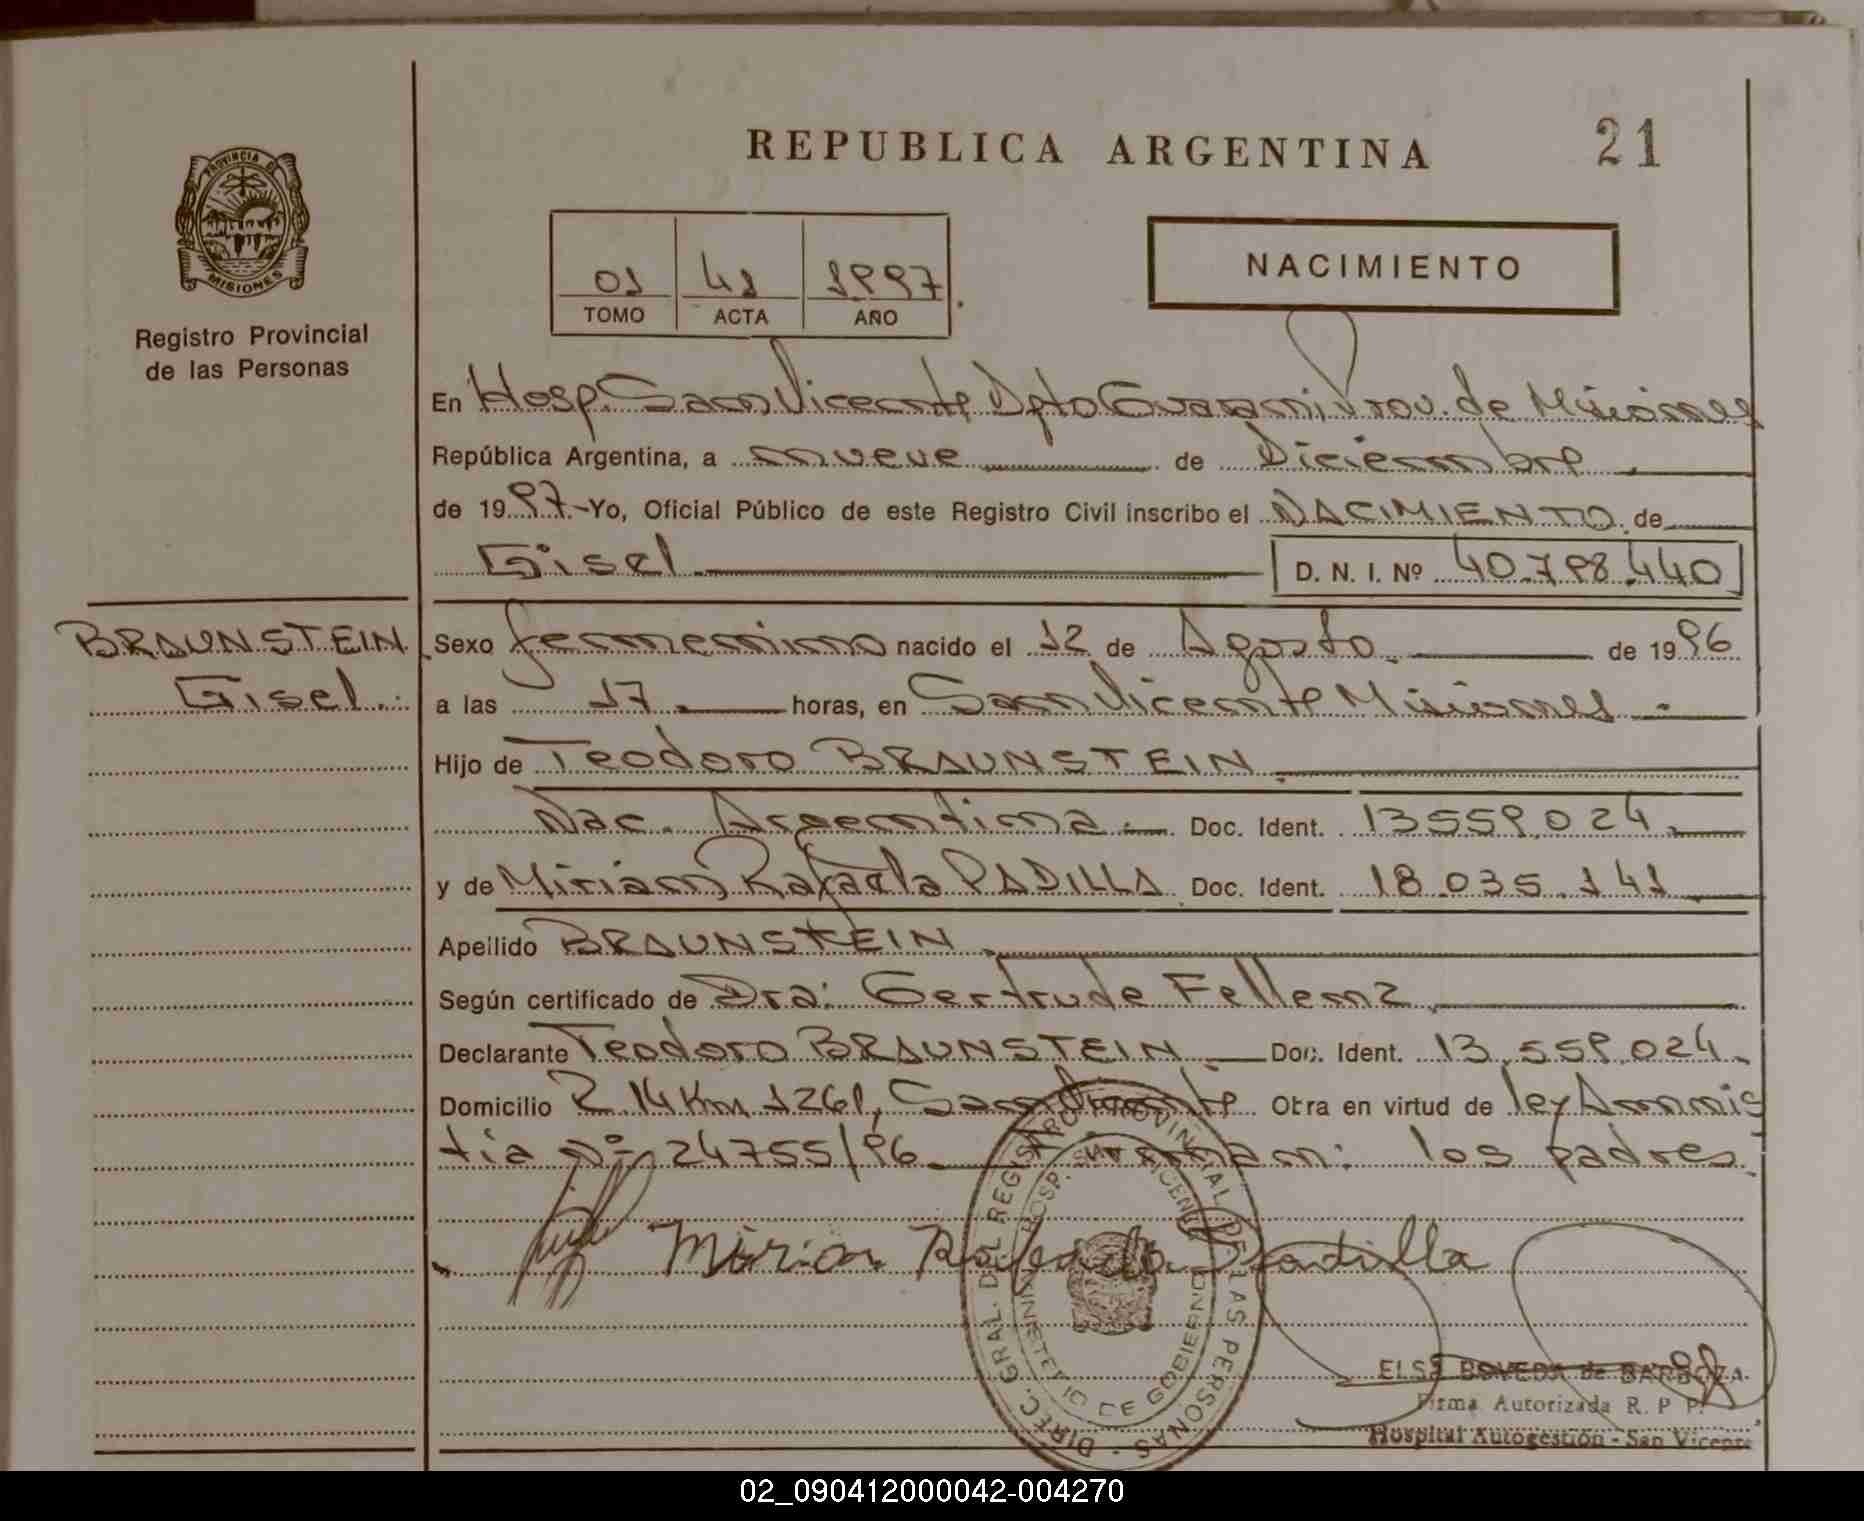 REPUBLICA ARGENTINA
21
PROVINCIA DE
MISIONES
Registro Provincial
de las Personas
01 41 1997
TOMO ACTA AÑO
NACIMIENTO
En Hosp. San Vicente Dpto Guarani Prov. de Misiones
República Argentina, a nueve de Diciembre
de 1997 - Yo, Oficial Público de este Registro Civil inscribo el NACIMIENTO de
Gisel D. N. I. Nº 40.798.440
BRAUNSTEIN
Gisel.
Sexo femenino nacido el 12 de Agosto. de 1996
a las 17 horas, en San Vicente Misiones
Hijo de Teodoro BRAUNSTEIN
Nac. Argentina Doc. Ident. 13559.024
y de Miriam Rafaela PADILLA Doc. Ident. 18.035.141
Apellido BRAUNSTEIN
Según certificado de Dra: Gertrude Fellenz
Declarante Teodoro BRAUNSTEIN Doc. Ident. 13.559.024
Domicilio R. 14 Km 1261, San Vicente Otra en virtud de ley Amnis
tia Nº 24755/96 firman: los padres.
Mirian Rafaela Padilla
DIREC. GRAL. DEL REGISTRO PROVINCIAL DE LAS PERSONAS
HOSP. SAN VICENTE
MINISTERIO DE GOBIERNO
ELSA BOVEDA de BARBOZA
Firma Autorizada R. P. P.
Hospital Autogestión - San Vicente
02_090412000042-004270